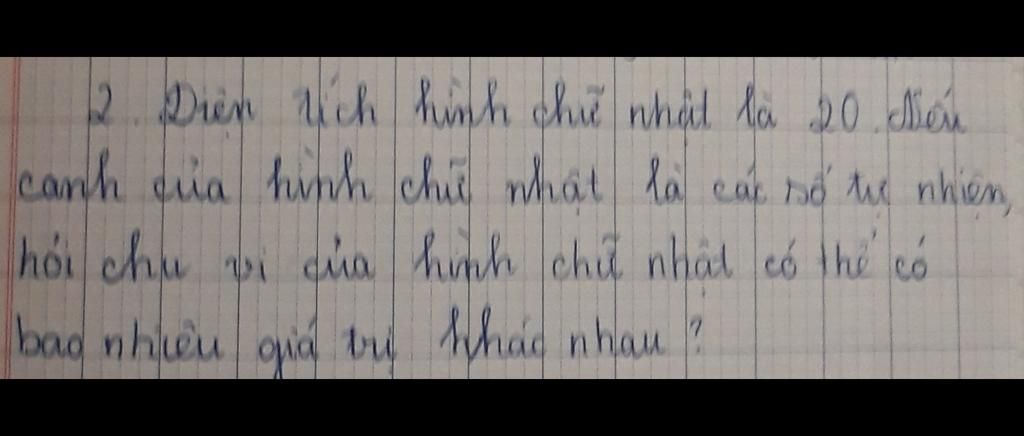 2. Diện tích hình chữ nhật là 20. Nếu
cạnh của hình chữ nhật là các số tự nhiên,
hỏi chu vi của hình chữ nhật có thể có
bao nhiêu giá trị khác nhau?